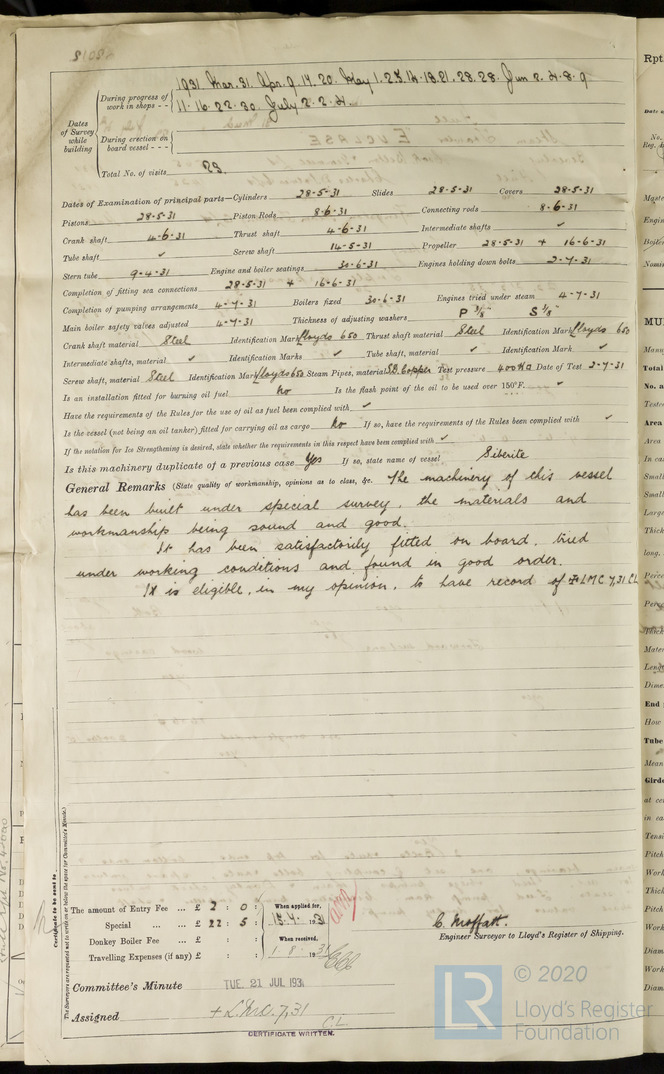 During progress of work in shops - - 1931 Mar. 31. Apr. 9. 17. 20. May 1. 28. 28. Jun 2. 4. 8. 9
11. 16. 22. 30. July 2. 2. 4.
Dates of Survey while building
During erection on board vessel - - -
Total No. of visits
Dates of Examination of principal parts—Cylinders 28-5-31 Slides 28-5-31 Covers 28-5-31
Pistons 28-5-31 Piston Rods 8-6-31 Connecting rods 8-6-31
Crank shaft 4-6-31 Thrust shaft 4-6-31 Intermediate shafts ✓
Tube shaft ✓ Screw shaft 14-5-31 Propeller 28-5-31 + 16-6-31
Stern tube 9-4-31 Engine and boiler seatings 30-6-31 Engines holding down bolts 2-7-31
Completion of fitting sea connections 28-5-31 + 16-6-31
Completion of pumping arrangements 4-7-31 Boilers fixed 30-6-31 Engines tried under steam 4-7-31
Main boiler safety valves adjusted 4-7-31 Thickness of adjusting washers P 3/8" S 3/8"
Crank shaft material Steel Identification Mark Lloyds 650 Thrust shaft material Steel Identification Mark Lloyds 650
Intermediate shafts, material ✓ Identification Marks ✓ Tube shaft, material ✓ Identification Mark ✓
Screw shaft, material Steel Identification Mark Lloyds 650 Steam Pipes, material S.D. Copper Test pressure 400 lbs Date of Test 2-7-31
Is an installation fitted for burning oil fuel No Is the flash point of the oil to be used over 150°F. ✓
Have the requirements of the Rules for the use of oil as fuel been complied with ✓
Is the vessel (not being an oil tanker) fitted for carrying oil as cargo No If so, have the requirements of the Rules been complied with ✓
If the notation for Ice Strengthening is desired, state whether the requirements in this respect have been complied with ✓
Is this machinery duplicate of a previous case Yes If so, state name of vessel Siberite
General Remarks (State quality of workmanship, opinions as to class, &c. The machinery of this vessel
has been built under special survey, the materials and
workmanship being sound and good.
It has been satisfactorily fitted on board, tried
under working conditions and found in good order.
It is eligible, in my opinion, to have record of + LMC 7,31 CL
Certificate to be sent to
The Surveyors are requested not to write on or below the space for Committee's Minute.
The amount of Entry Fee ... £ 2 : 0 : When applied for,
Special ... ... £ 22 : 5 : 15.7. 1931
Donkey Boiler Fee ... £ : : When received,
Travelling Expenses (if any) £ : : 1.8. 1931
C. Moffatt.
Engineer Surveyor to Lloyd's Register of Shipping.
Committee's Minute TUE. 21 JUL 1931
Assigned + L.M.C. 7,31
CL
CERTIFICATE WRITTEN.
LR
© 2020
Lloyd's Register
Foundation